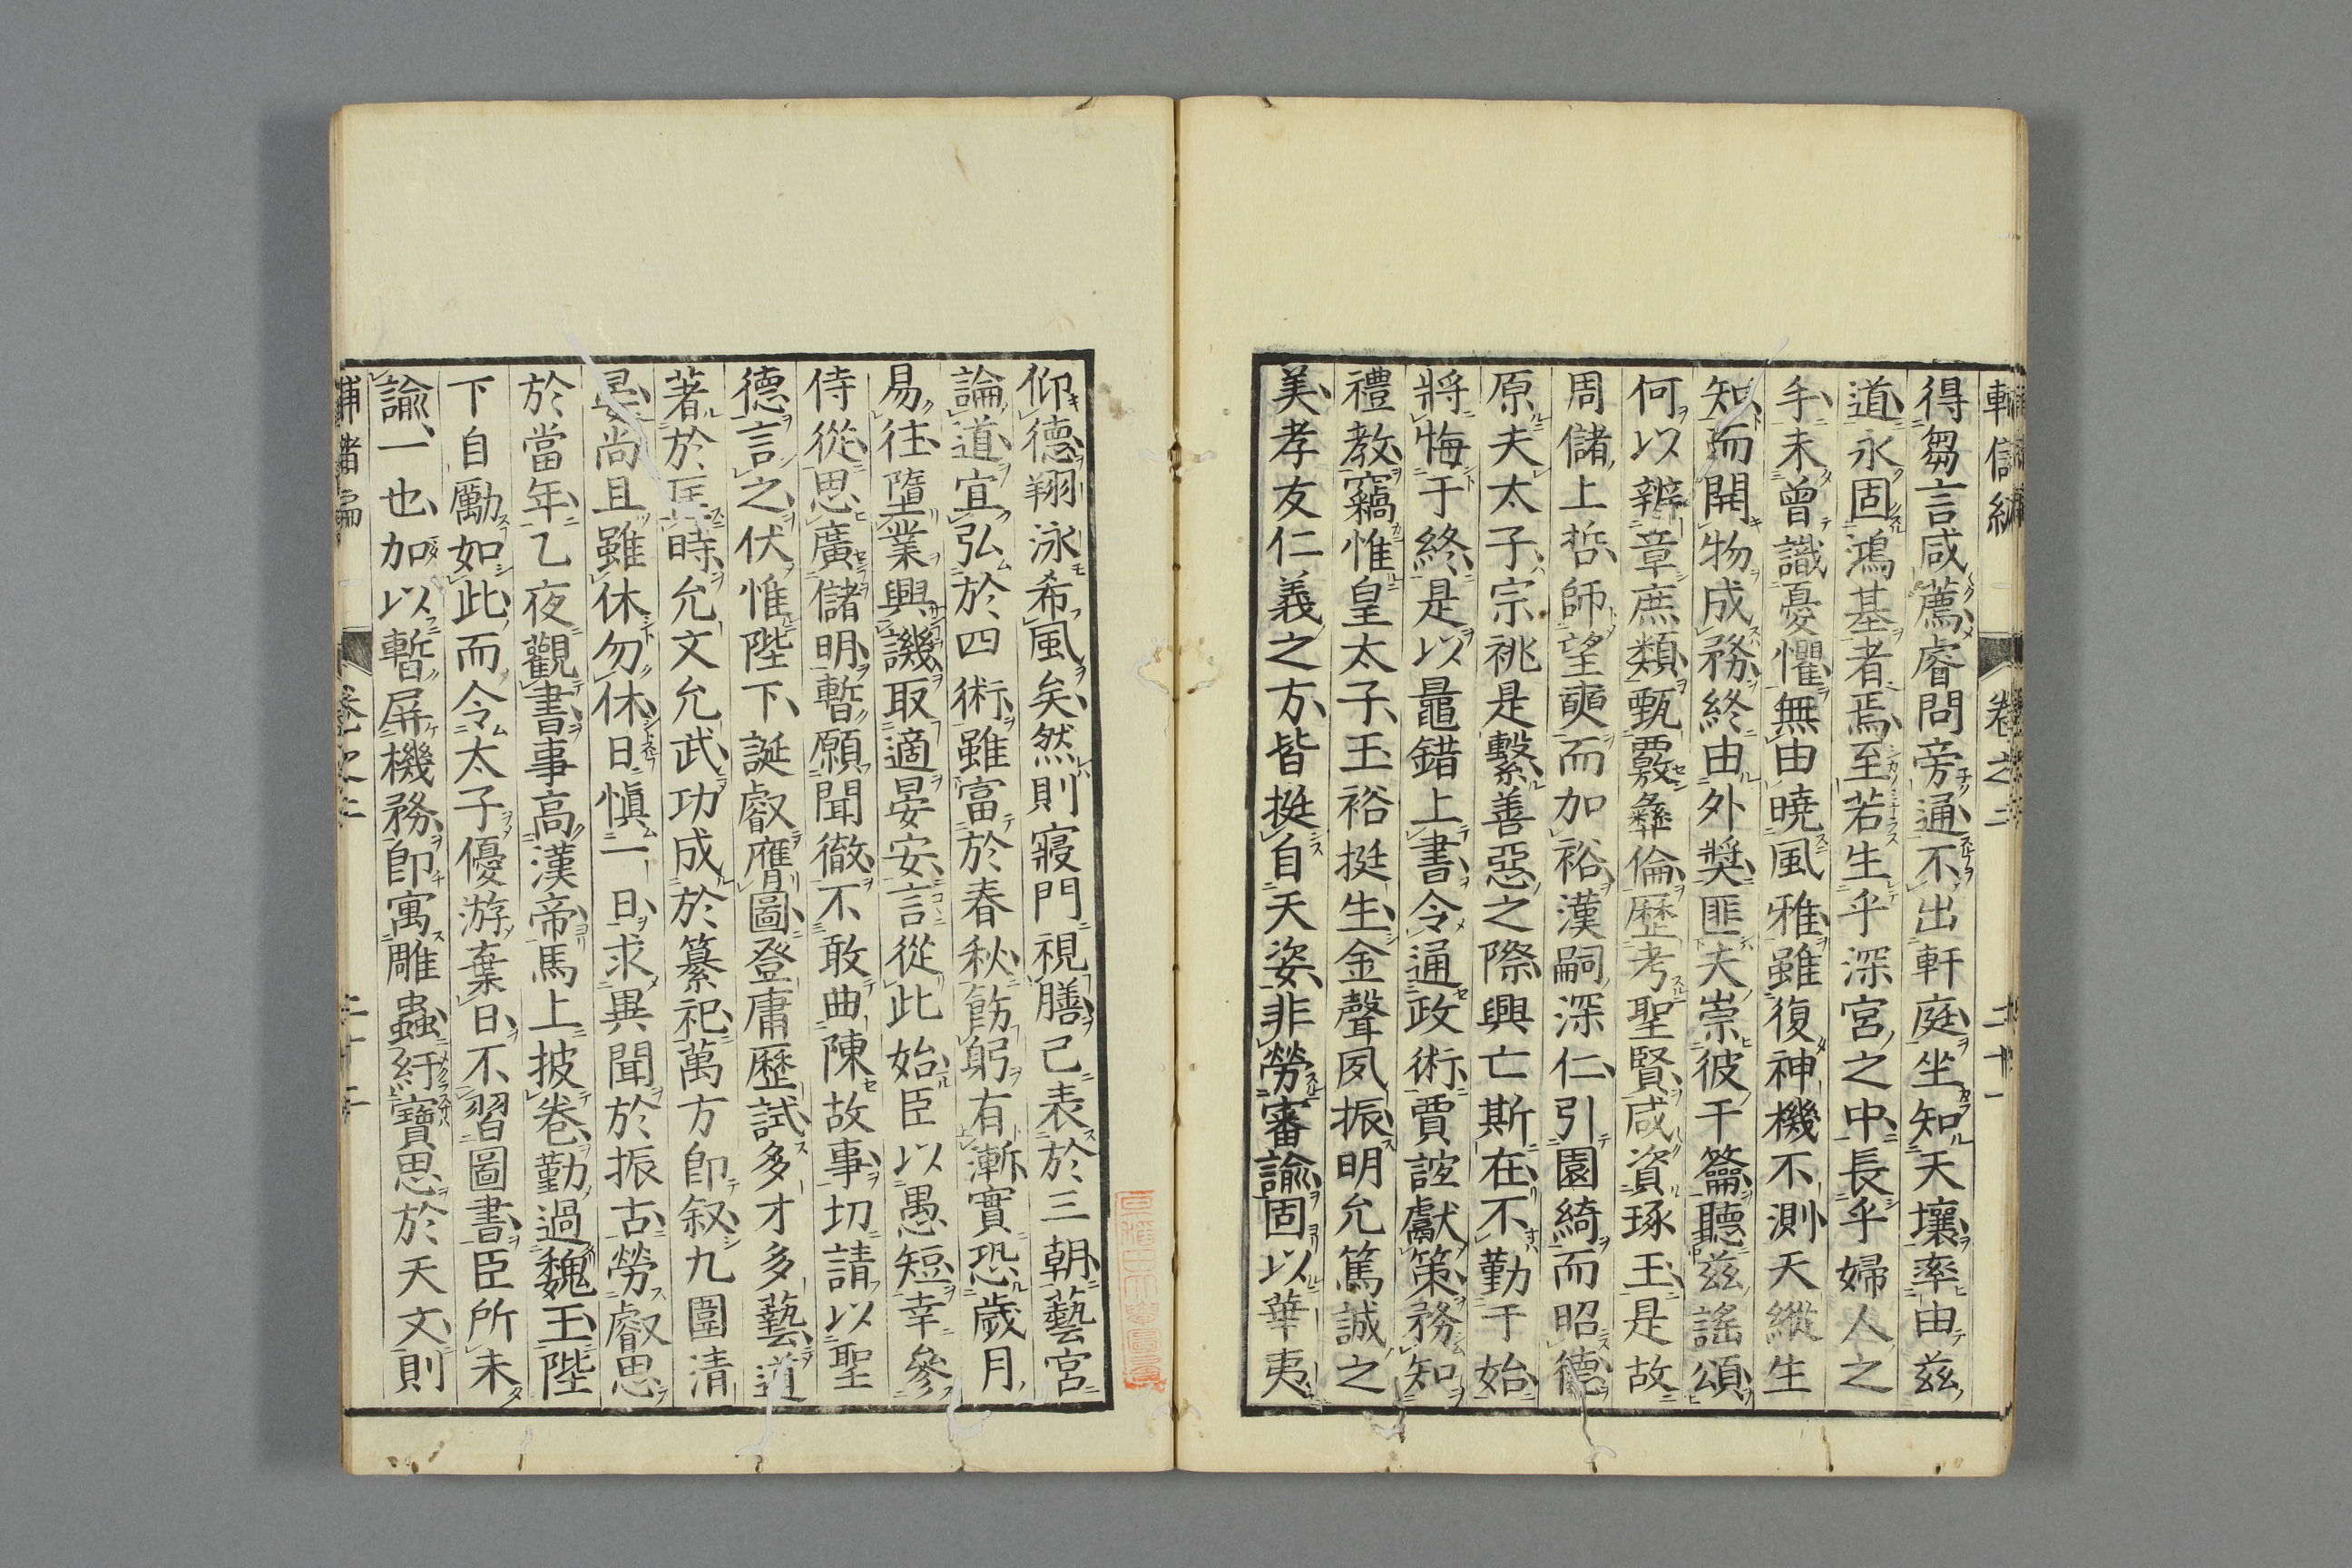 得芻言咸薦睿問旁通不出軒庭坐知天壤率由茲
道永固鴻基者焉至若生乎深宮之中長乎婦人之
手未曾識憂懼無由曉風雅雖復神機不測天縱生
知而開物成務終由外奬匪夫崇彼干籥聽茲謠頌
何以辨章庶類甄覈彝倫歷考聖賢咸資琢玉是故
周儲上哲師望奭而加裕漢嗣深仁引園綺而昭德
原夫太子宗祧是繫善惡之際興亡斯在不勤于始
將悔于終是以鼂錯上書令通政術賈誼獻策務知
禮教竊惟皇太子玉裕挺生金聲夙振明允篤誠之
美孝友仁義之方皆挺自天姿非勞審諭固以華夷
仰德翔泳希風矣然則寢門視膳已表於三朝藝宮
論道宜弘於四術雖富於春秋飭躬有漸實恐歲月
易往墮業興譏取適晏安言從此始臣以愚短幸參
侍從思廣儲明暫願聞徹不敢曲陳故事切請以聖
德言之伏惟陛下誕叡膺圖登庸歷試多才多藝道
著於匡時允文允武功成於纂祀萬方即叙九圍清
晏尚且雖休勿休日慎一日求異聞於振古勞叡思
於當年乙夜觀書事高漢帝馬上披卷勤過魏王陛
下自勵如此而令太子優游棄日不習圖書臣所未
諭一也加以暫屏機務即寓雕蟲紆寶思於天文則
卷之二 二十一